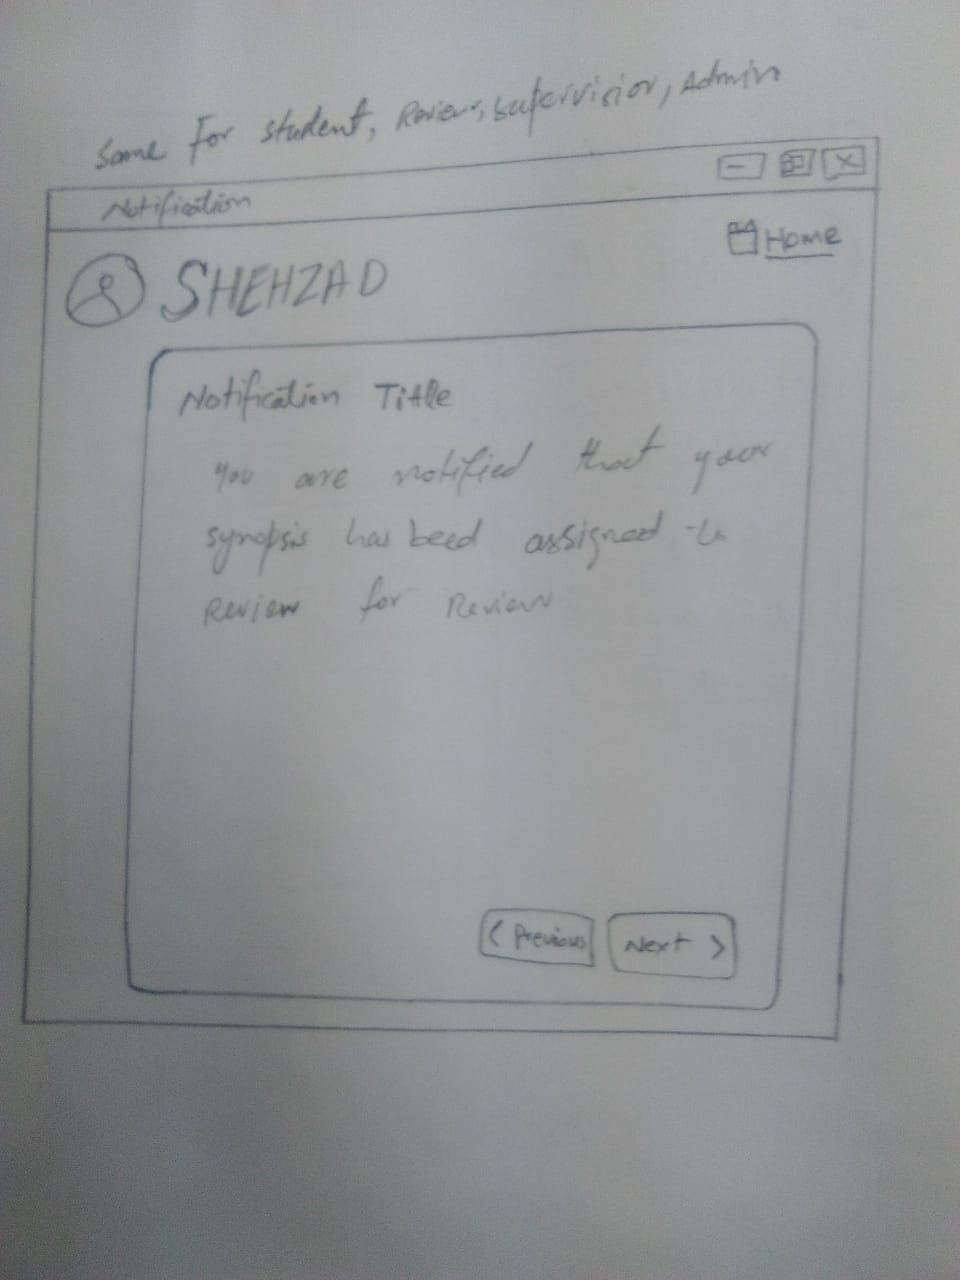 Same For student, Review, supervisior, Admin
Notification
Home
SHEHZAD
Notification Title
You are notified that your
synopsis has beed assigned to
Review for Review
< Previous
Next >